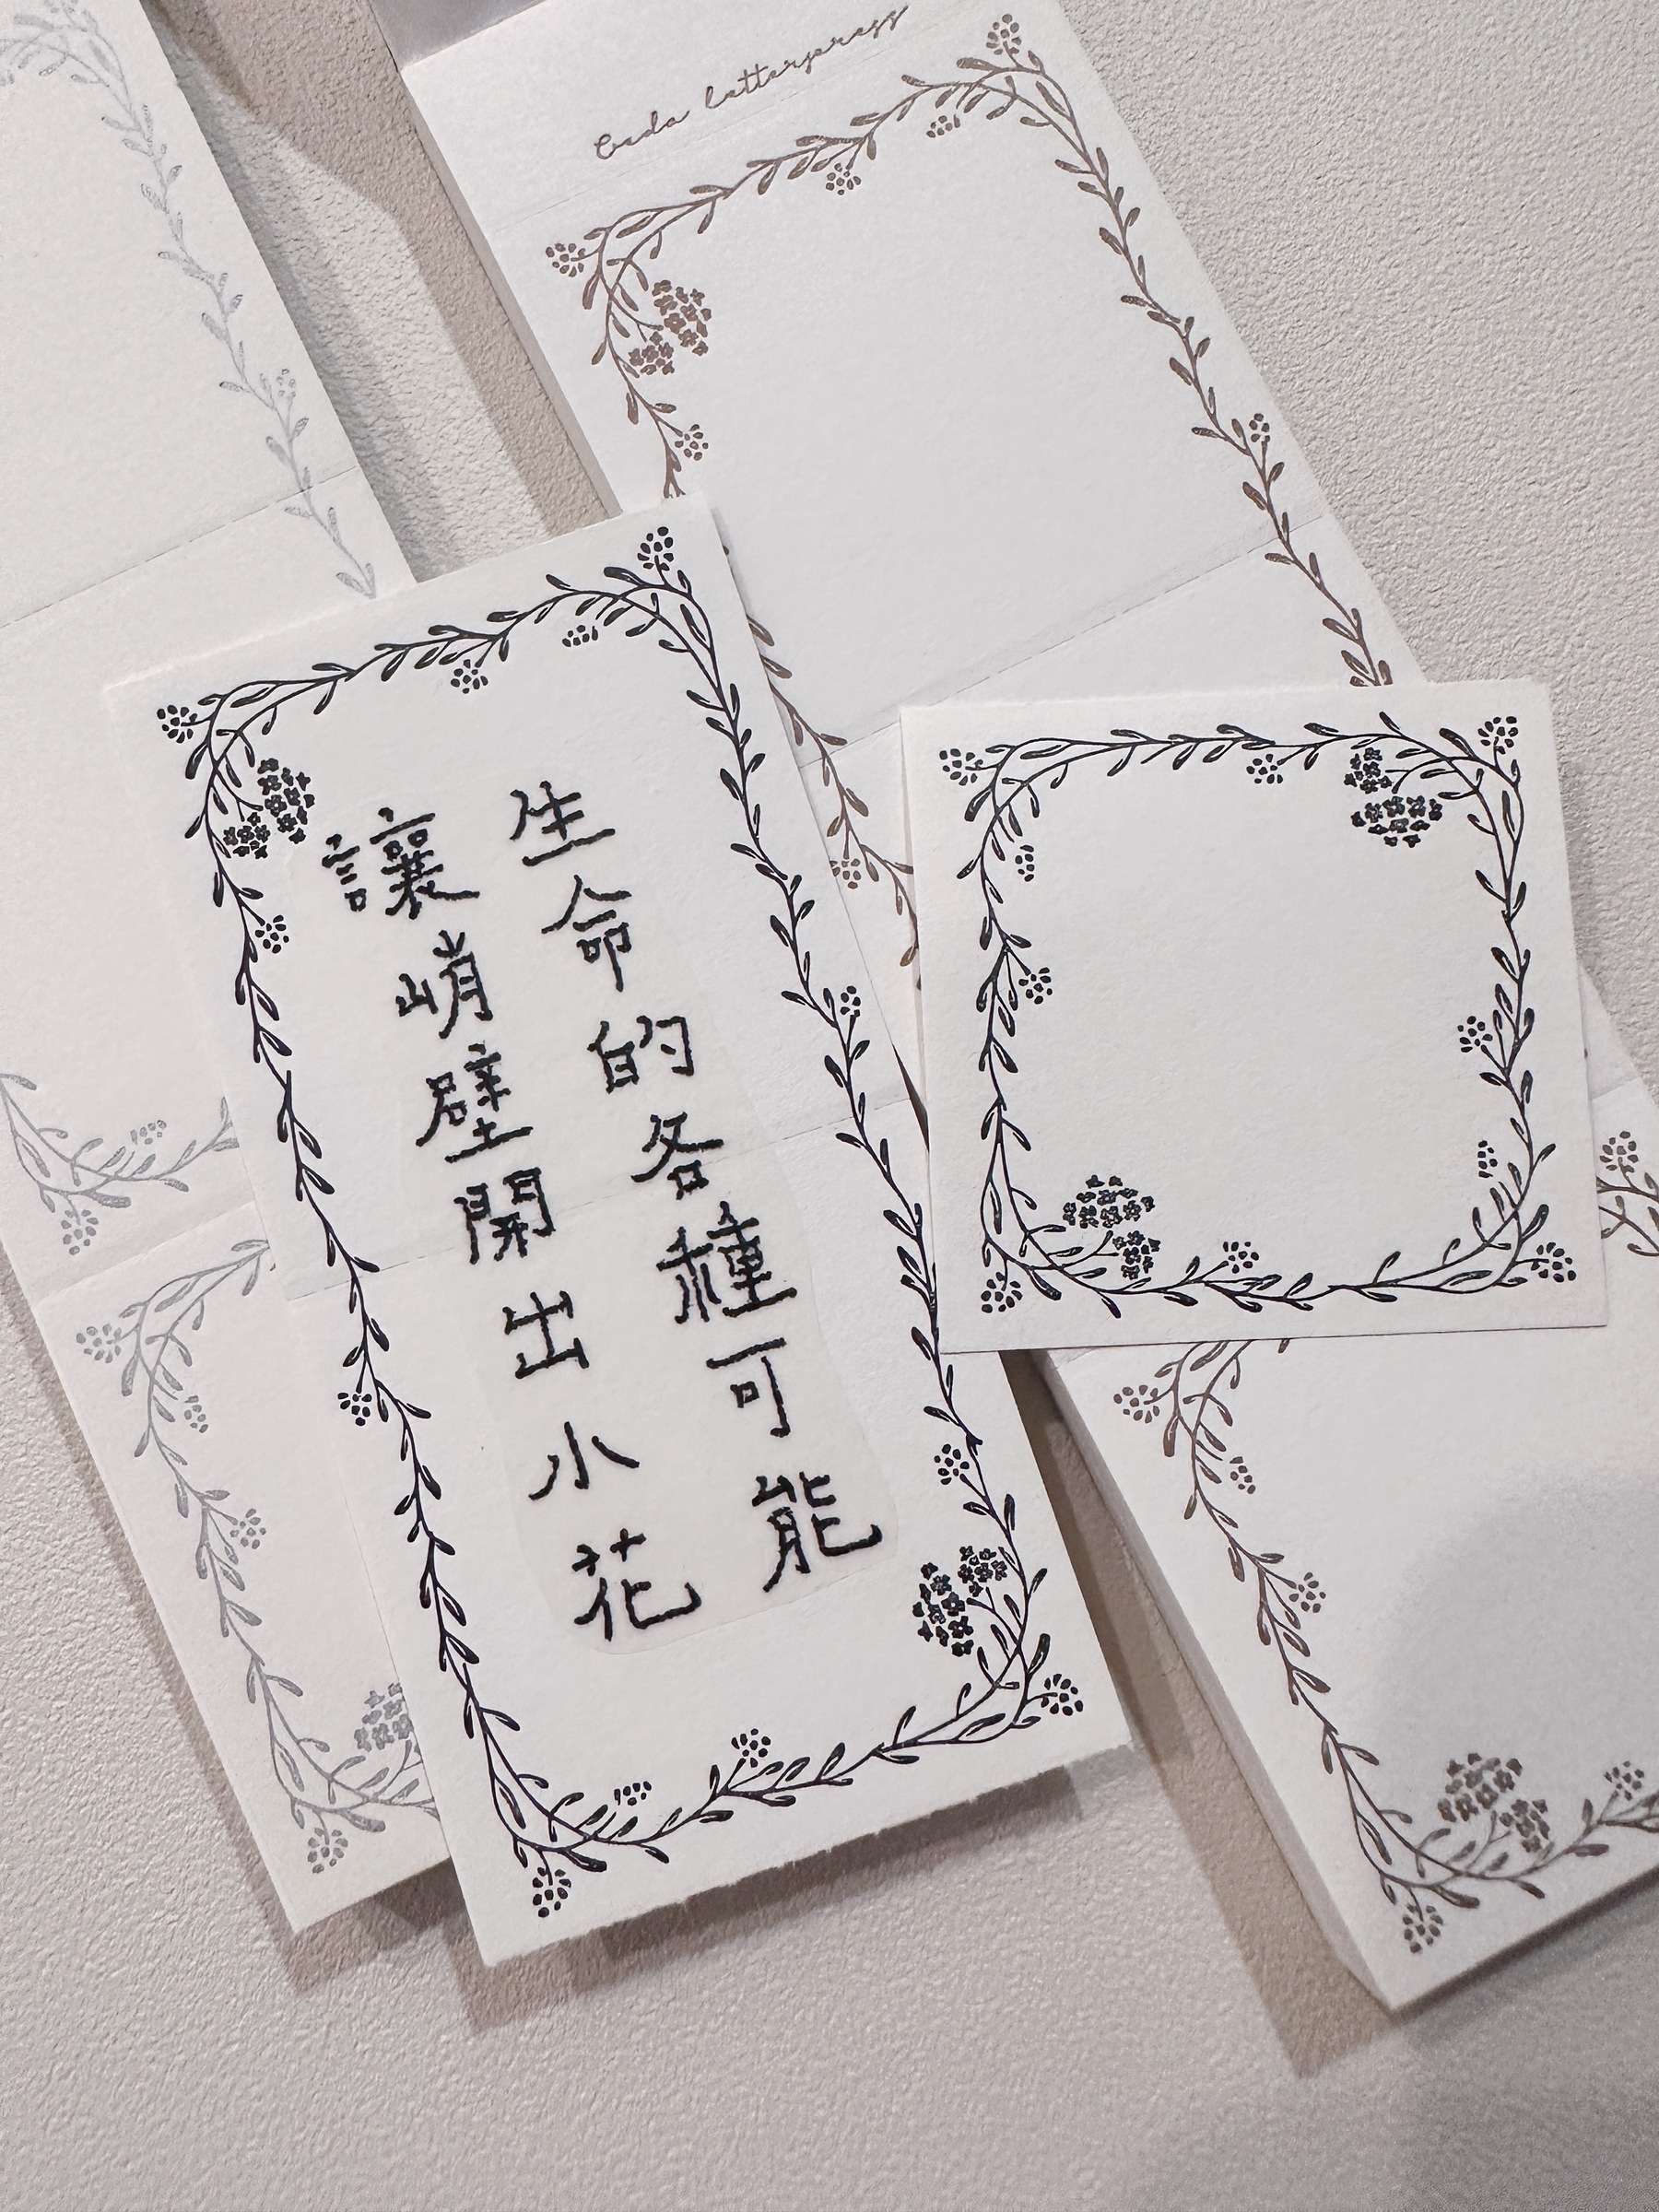 Geda letterpress
生命的各種可能
讓峭壁開出小花